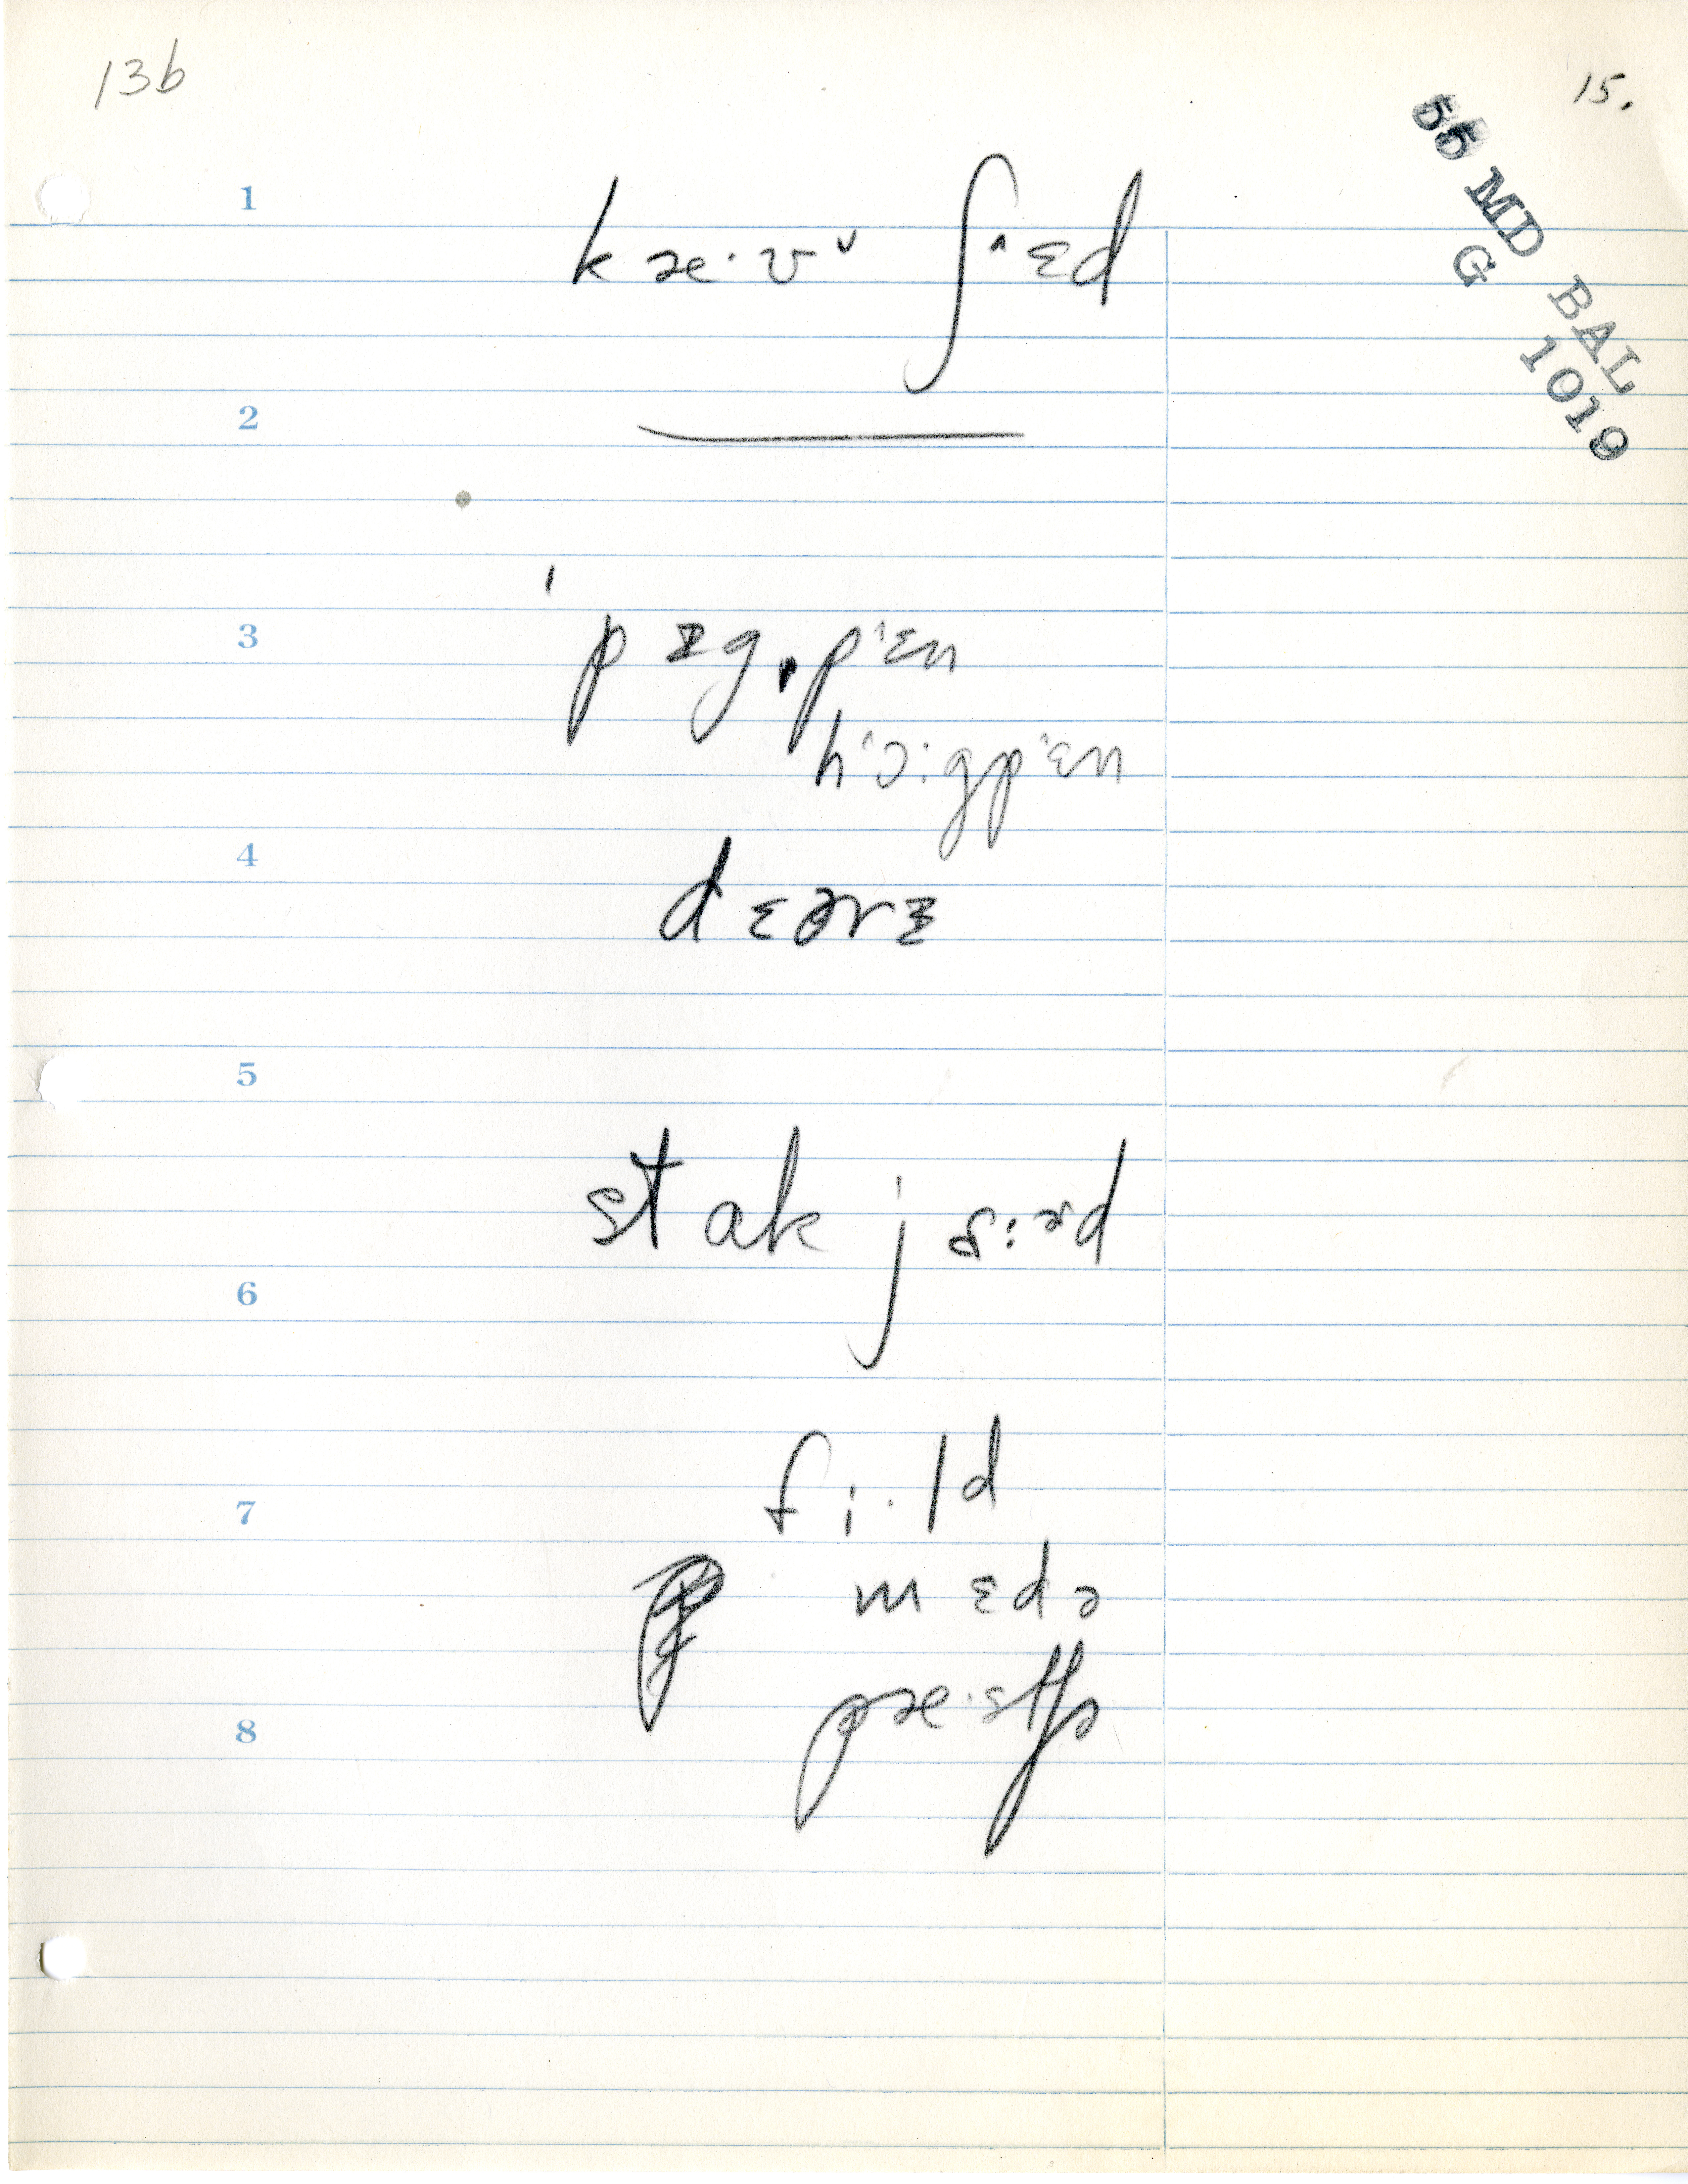 13b
15.
55 MD BAL
G 1019
1
kæ·vᵛ ʃ˄ɛd
2
3
ˈpɪgˌp˄ɛn
h˄ɔ:gp˄ɛn
4
dɛərɪ
5
stak jɑ:ɚd
6
fi·ld
7
mɛdə
pæ·stʃə
8